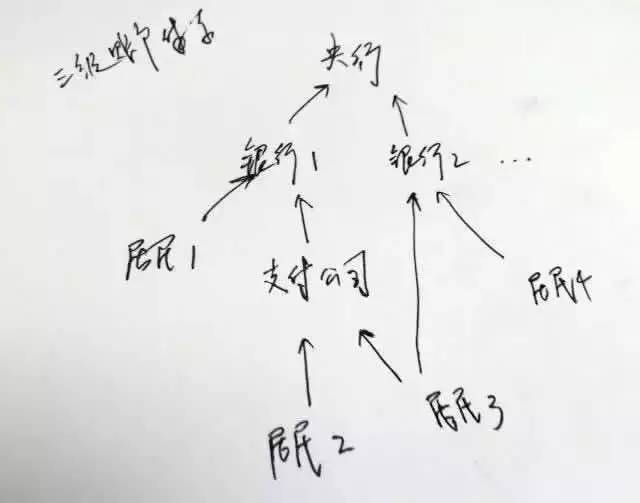 三级账户体系
央行
银行1
银行2 ...
居民1
支付公司
居民4
居民2
居民3